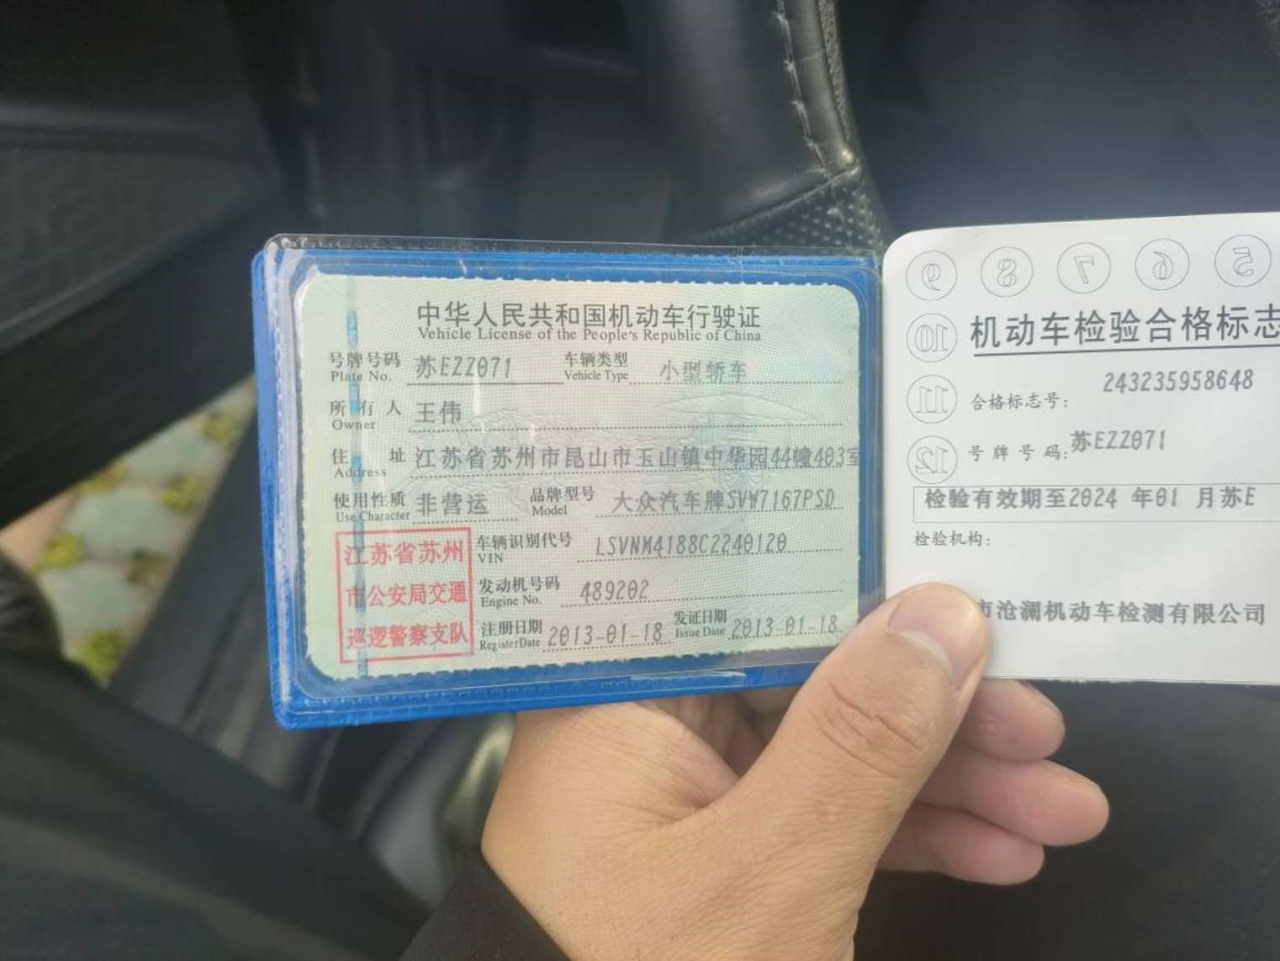 中华人民共和国机动车行驶证
Vehicle License of the People's Republic of China
号牌号码 Plate No. 苏EZZ071 车辆类型 Vehicle Type 小型轿车
所有人 Owner 王伟
住址 Address 江苏省苏州市昆山市玉山镇中华园44幢403室
使用性质 Use Character 非营运 品牌型号 Model 大众汽车牌SVW7167PSD
江苏省苏州
市公安局交通
巡逻警察支队
车辆识别代号 VIN LSVNM4188C2240120
发动机号码 Engine No. 489202
注册日期 Register Date 2013-01-18 发证日期 Issue Date 2013-01-18
9 8 7 6 5
10
11
12
机动车检验合格标志
合格标志号: 243235958648
号牌号码: 苏EZZ071
检验有效期至2024 年01 月苏E
检验机构:
市沧澜机动车检测有限公司